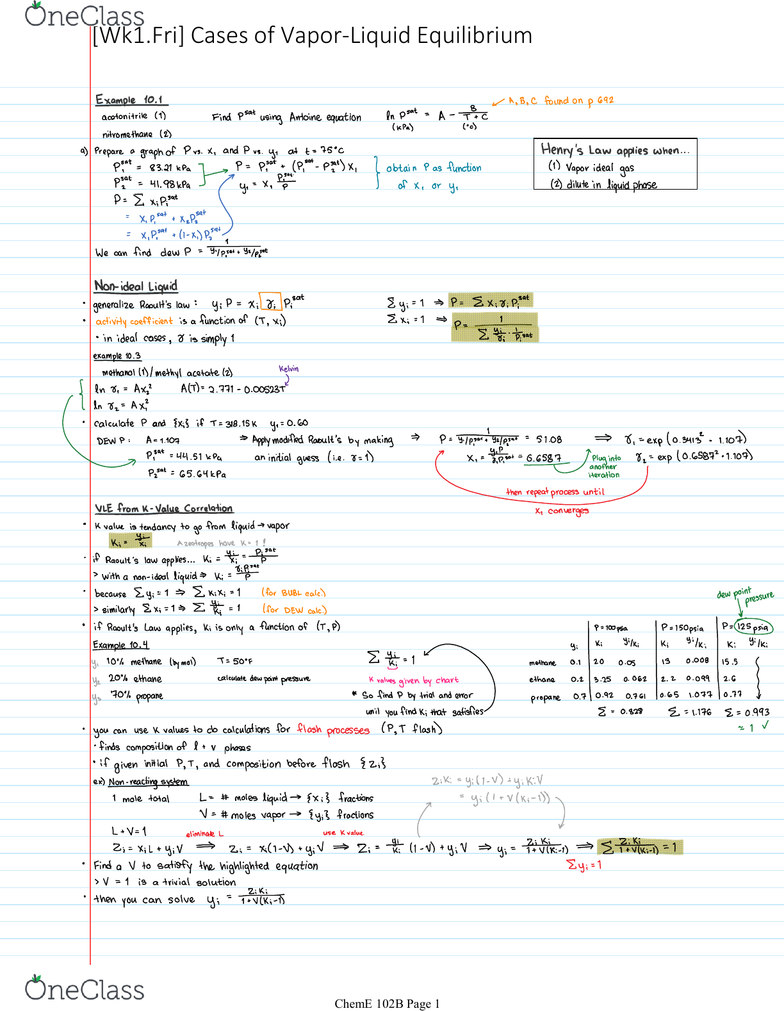 OneClass
[Wk1.Fri] Cases of Vapor-Liquid Equilibrium
Example 10.1
acetonitrile (1)
nitromethane (2)
Find Pˢᵃᵗ using Antoine equation
ln Pˢᵃᵗ = A - B/(T + C)
(kPa) (°C)
A, B, C found on p 692
a) Prepare a graph of P vs. x₁ and P vs. y₁ at t = 75°C
P₁ˢᵃᵗ = 83.21 kPa
P₂ˢᵃᵗ = 41.98 kPa
P = P₂ˢᵃᵗ + (P₁ˢᵃᵗ - P₂ˢᵃᵗ) x₁
y₁ = x₁ P₁ˢᵃᵗ/P
obtain P as function
of x₁ or y₁
P = Σ xᵢPᵢˢᵃᵗ
= x₁P₁ˢᵃᵗ + x₂P₂ˢᵃᵗ
= x₁P₁ˢᵃᵗ + (1-x₁) P₂ˢᵃᵗ
We can find dew P = 1/(y₁/P₁ˢᵃᵗ + y₂/P₂ˢᵃᵗ)
Henry's Law applies when...
(1) Vapor ideal gas
(2) dilute in liquid phase
Non-ideal Liquid
• generalize Raoult's law : yᵢ P = xᵢ γᵢ Pᵢˢᵃᵗ
• activity coefficient is a function of (T, xᵢ)
• in ideal cases, γ is simply 1
Σ yᵢ = 1 ⇒ P = Σ xᵢ γᵢ Pᵢˢᵃᵗ
Σ xᵢ = 1 ⇒ P = 1/(Σ yᵢ/γᵢ · 1/Pᵢˢᵃᵗ)
example 10.3
methanol (1) / methyl acetate (2)
Kelvin
ln γ₁ = Ax₂² A(T) = 2.771 - 0.00523T
ln γ₂ = Ax₁²
• calculate P and {xᵢ} if T = 318.15 K y₁ = 0.60
DEW P : A = 1.107
P₁ˢᵃᵗ = 44.51 kPa
P₂ˢᵃᵗ = 65.64 kPa
⇒ Apply modified Raoult's by making
an initial guess (i.e. γ = 1)
⇒ P = 1/(y₁/P₁ˢᵃᵗ + y₂/P₂ˢᵃᵗ) = 51.08
x₁ = y₁P/γ₁P₁ˢᵃᵗ = 6.6587
Plug into
another
iteration
⇒ γ₁ = exp (0.3413² · 1.107)
γ₂ = exp (0.6587² · 1.107)
then repeat process until
x₁ converges
VLE from K-Value Correlation
• K value is tendancy to go from liquid → vapor
Kᵢ = yᵢ/xᵢ Azeotropes have K = 1 !
• if Raoult's law applies... Kᵢ = yᵢ/xᵢ = Pᵢˢᵃᵗ/P
> with a non-ideal liquid ⇒ Kᵢ = γᵢPᵢˢᵃᵗ/P
• because Σyᵢ = 1 ⇒ Σ Kᵢxᵢ = 1 (for BUBL calc)
> similarly Σxᵢ = 1 ⇒ Σ yᵢ/Kᵢ = 1 (for DEW calc)
• if Raoult's Law applies, Kᵢ is only a function of (T, P)
Example 10.4
y₁ 10% methane (by mol) T = 50°F
y₂ 20% ethane calculate dew point pressure
y₃ 70% propane
Σ yᵢ/Kᵢ = 1
K values given by chart
* So find P by trial and error
unil you find Kᵢ that satisfies
dew point
pressure
P = 100 psia P = 150 psia P = 125 psia
yᵢ Kᵢ yᵢ/Kᵢ Kᵢ yᵢ/Kᵢ Kᵢ yᵢ/Kᵢ
methane 0.1 20 0.05 13 0.008 15.5
ethane 0.2 3.25 0.062 2.2 0.099 2.6
propane 0.7 0.92 0.761 0.65 1.077 0.77
Σ = 0.828 Σ = 1.176 Σ = 0.993
≈ 1 ✓
• you can use K values to do calculations for flash processes (P, T flash)
• finds composition of l + v phases
• if given initial P, T, and composition before flash {zᵢ}
ex) Non-reacting system
1 mole total L = # moles liquid → {xᵢ} fractions
V = # moles vapor → {yᵢ} fractions
zᵢKᵢ = yᵢ(1-V) + yᵢKᵢV
= yᵢ(1 + V(Kᵢ-1))
L + V = 1 eliminate L use K value
zᵢ = xᵢL + yᵢV ⇒ zᵢ = x(1-V) + yᵢV ⇒ zᵢ = yᵢ/Kᵢ (1-V) + yᵢV ⇒ yᵢ = zᵢKᵢ/(1+V(Kᵢ-1)) ⇒ Σ zᵢKᵢ/(1+V(Kᵢ-1)) = 1
Σyᵢ = 1
• Find a V to satisfy the highlighted equation
> V = 1 is a trivial solution
• then you can solve yᵢ = zᵢKᵢ/(1+V(Kᵢ-1))
OneClass
ChemE 102B Page 1